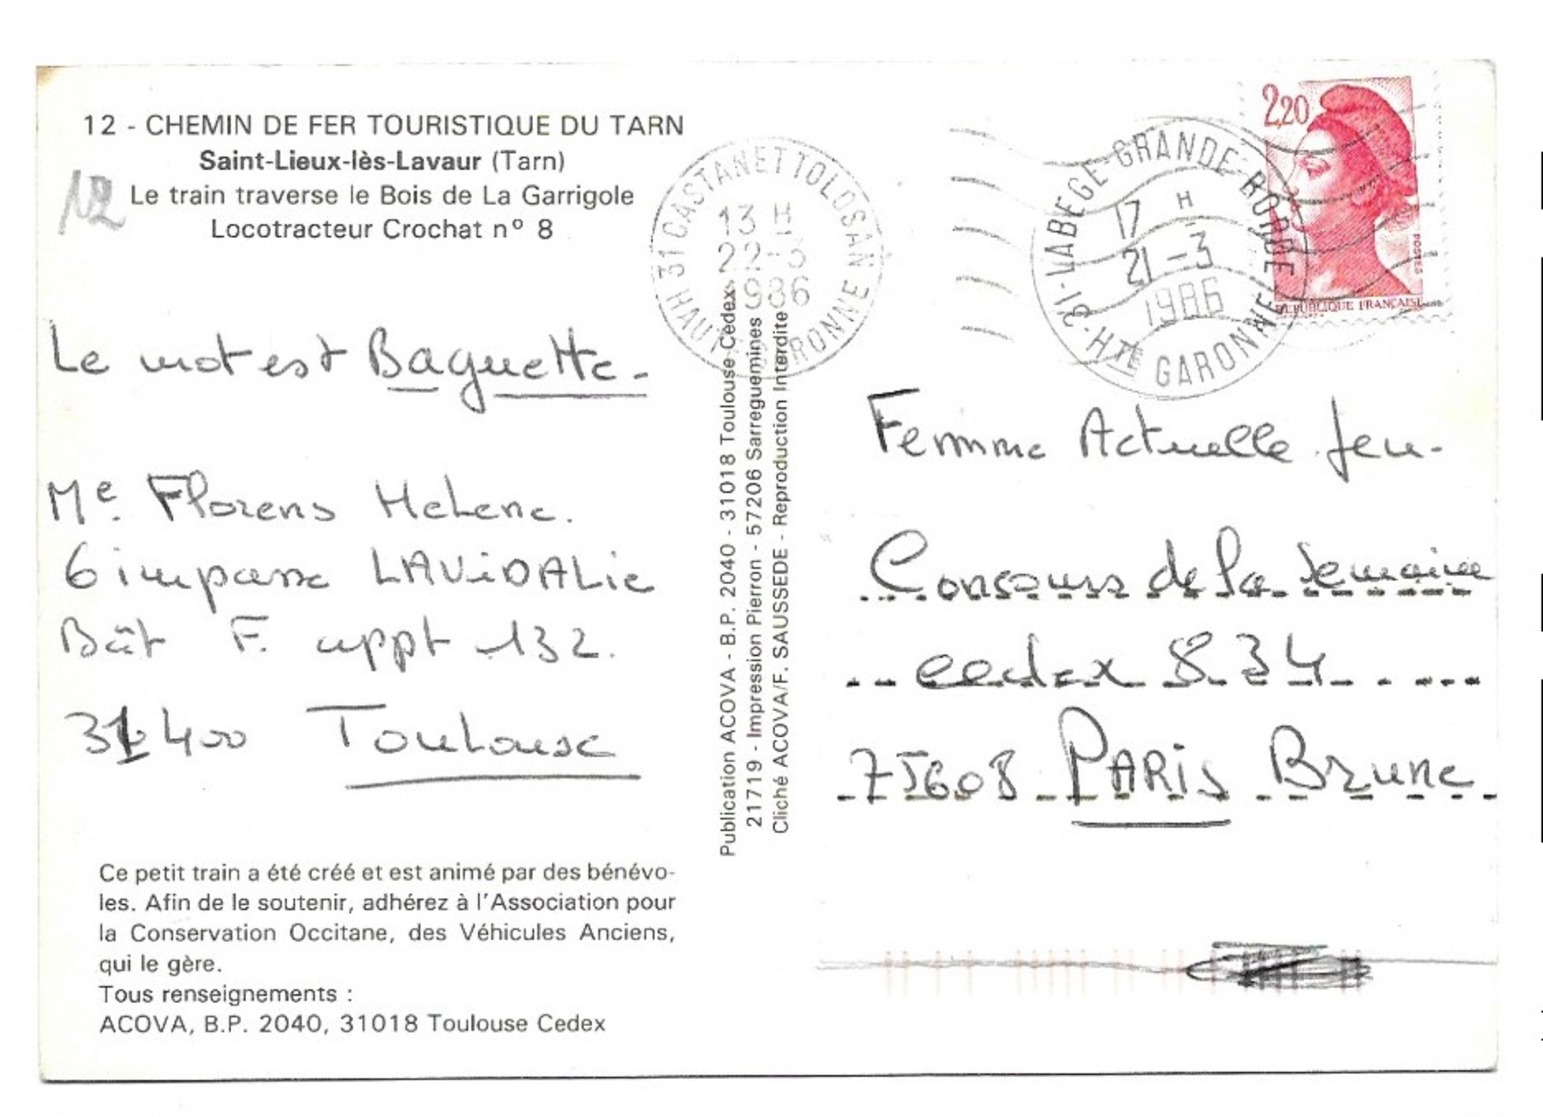 12 - CHEMIN DE FER TOURISTIQUE DU TARN
Saint-Lieux-lès-Lavaur (Tarn)
Le train traverse le Bois de La Garrigole
Locotracteur Crochat nº 8
12
31 CASTANET TOLOSAN
13 H
22-3
1986
HAUTE GARONNE
31-LABEGE-GRANDE-BORDE
17 H
21-3
1986
HTE GARONNE
2,20
POSTES
REPUBLIQUE FRANCAISE
Le mot est Baguette.
Me. Florens Helene.
6 impasse LAViDALie
Bât F. appt 132.
31400 Toulouse
Ce petit train a été créé et est animé par des bénévo-
les. Afin de le soutenir, adhérez à l'Association pour
la Conservation Occitane, des Véhicules Anciens,
qui le gère.
Tous renseignements :
ACOVA, B.P. 2040, 31018 Toulouse Cedex
Publication ACOVA - B.P. 2040 - 31018 Toulouse Cedex
21719 - Impression Pierron - 57206 Sarreguemines
Cliché ACOVA/F. SAUSSEDE - Reproduction Interdite
Femme Actuelle Jeu-
Concours de la Semaine
cedex 834
75608 PARiS Brune